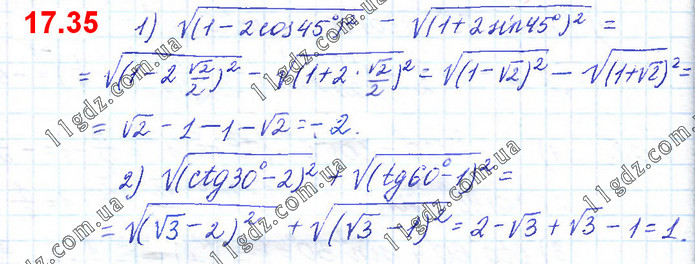 17.35
1) √(1-2cos45°)² - √(1+2sin45°)² =
= √(1-2 √2/2)² - √(1+2·√2/2)² = √(1-√2)² - √(1+√2)² =
= √2 - 1 - 1 - √2 = -2.
2) √(ctg30°-2)² + √(tg60°-1)² =
= √(√3-2)² + √(√3-1)² = 2-√3+√3-1=1.
11gdz.com.ua
11gdz.com.ua
11gdz.com.ua
11gdz.com.ua
11gdz.com.ua